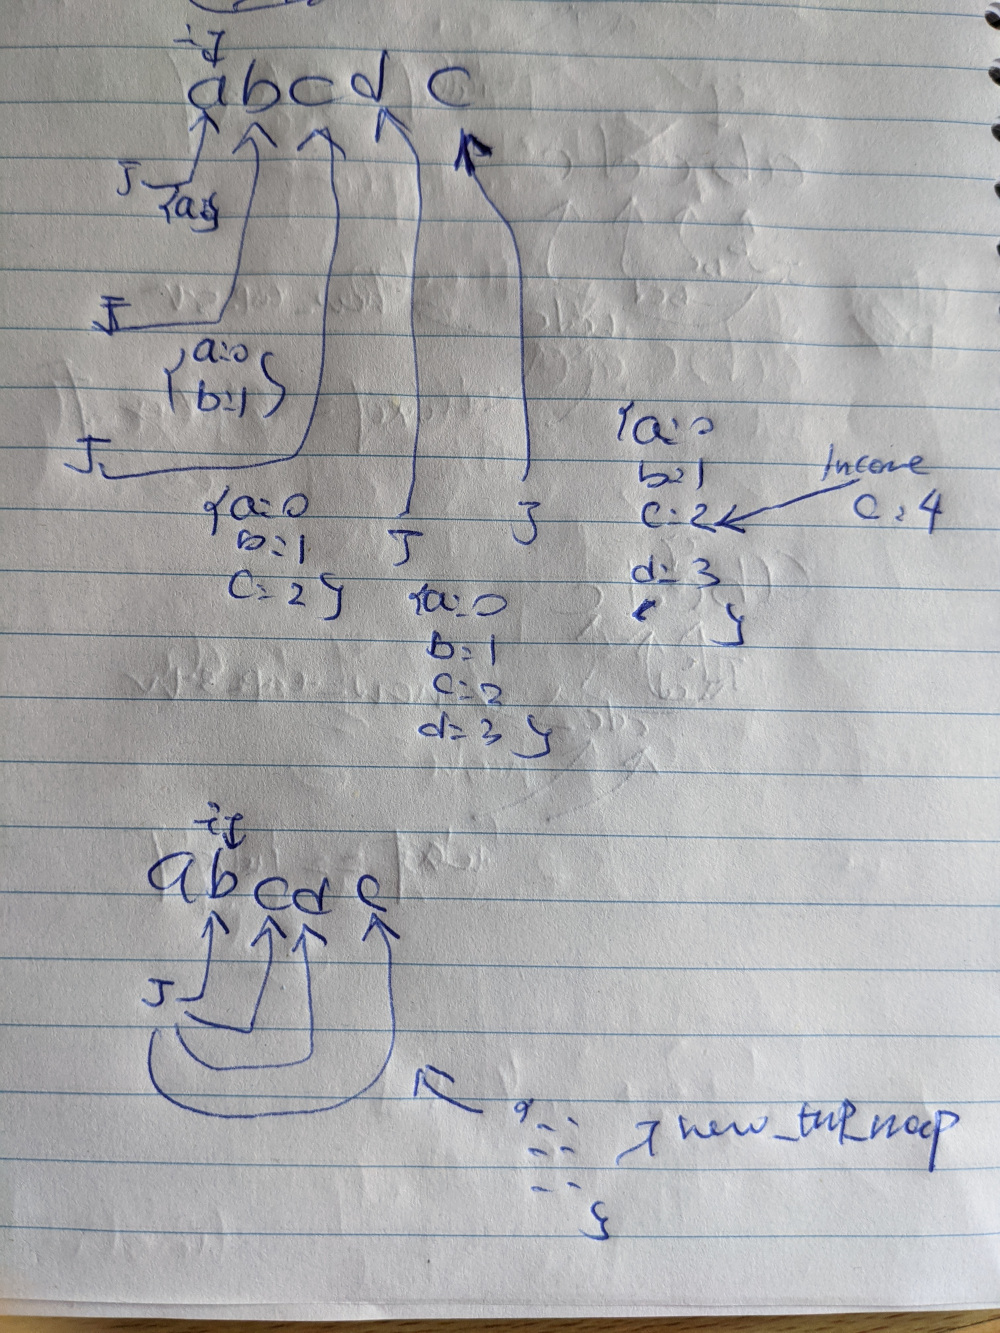 i
a b c d c
J
{a:
J
{a:0
b:1}
J
{a:0
b:1
c:2}
J
{a:0
b:1
c:2
d:3}
J
{a:0
b:1
c:2
d:3
}
Income
c:4
i
a b c d c
J
{
}
new_tmp_map